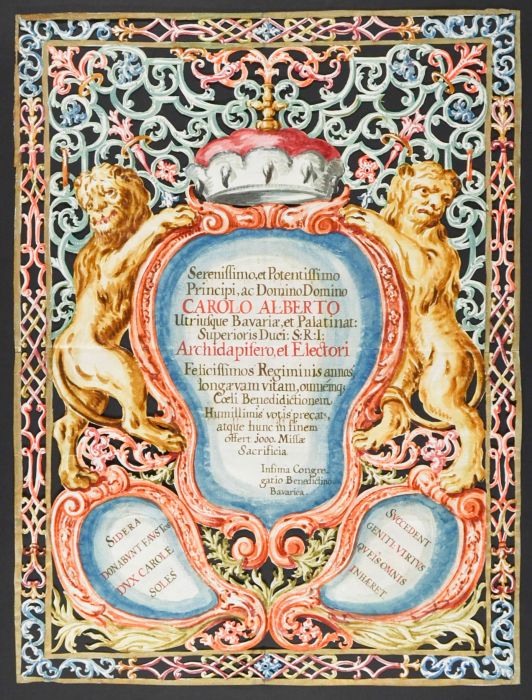 Serenissimo, et Potentissimo
Principi, ac Domino Domino
CAROLO ALBERTO
Utriusque Bavariæ, et Palatinat:
Superioris Duci: S: R: I:
Archidapifero, et Electori
Felicissimos Regiminis annos,
longævam vitam, omnemq;
Cœli Benedidictionem
Humillimis votis precat,
atque hunc in finem
offert 3000. Missæ
Sacrificia
Infima Congre,
gatio Benedictino
Bavarica.
SIDERA
DONABUNT FAUSTOS
DUX CAROLE
SOLES
SUCCEDENT
GENITI: VIRTUS
QUEIS OMNIS
INHÆRET